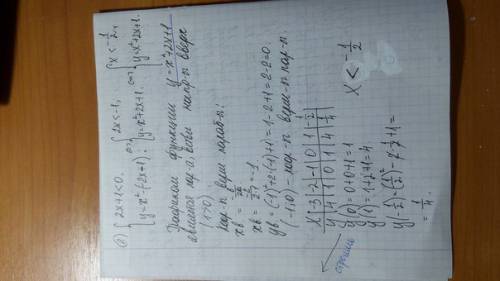 {2x+1<0. <=> {2x<-1, <=> {x<-1/2,
{y=x²-(-2x+1). {y=x²+2x+1. {y=x²+2x+1.
Графиком функции y=x²+2x+1
является пар-а, ветви напр-н вверх
(1>0)
Коор-н верш параб-н:
xв = -b/2a
xв = -2/2·1 = -1
yв=(-1)²+2·(-1)+1=1-2+1=2-2=0.
(-1;0) - коор-н верш-н пар-н.
x | -3 | -2 | -1 | 0 | 1 | -1/2
y | 4 | 1 | 0 | 1 | 4 | 1/4
y(0)=0+0+1=1
y(1)=1+2+1=4
y(-1/2)=(-1/2)²-2·1/2+1=
= 1/4.
x < -1/2